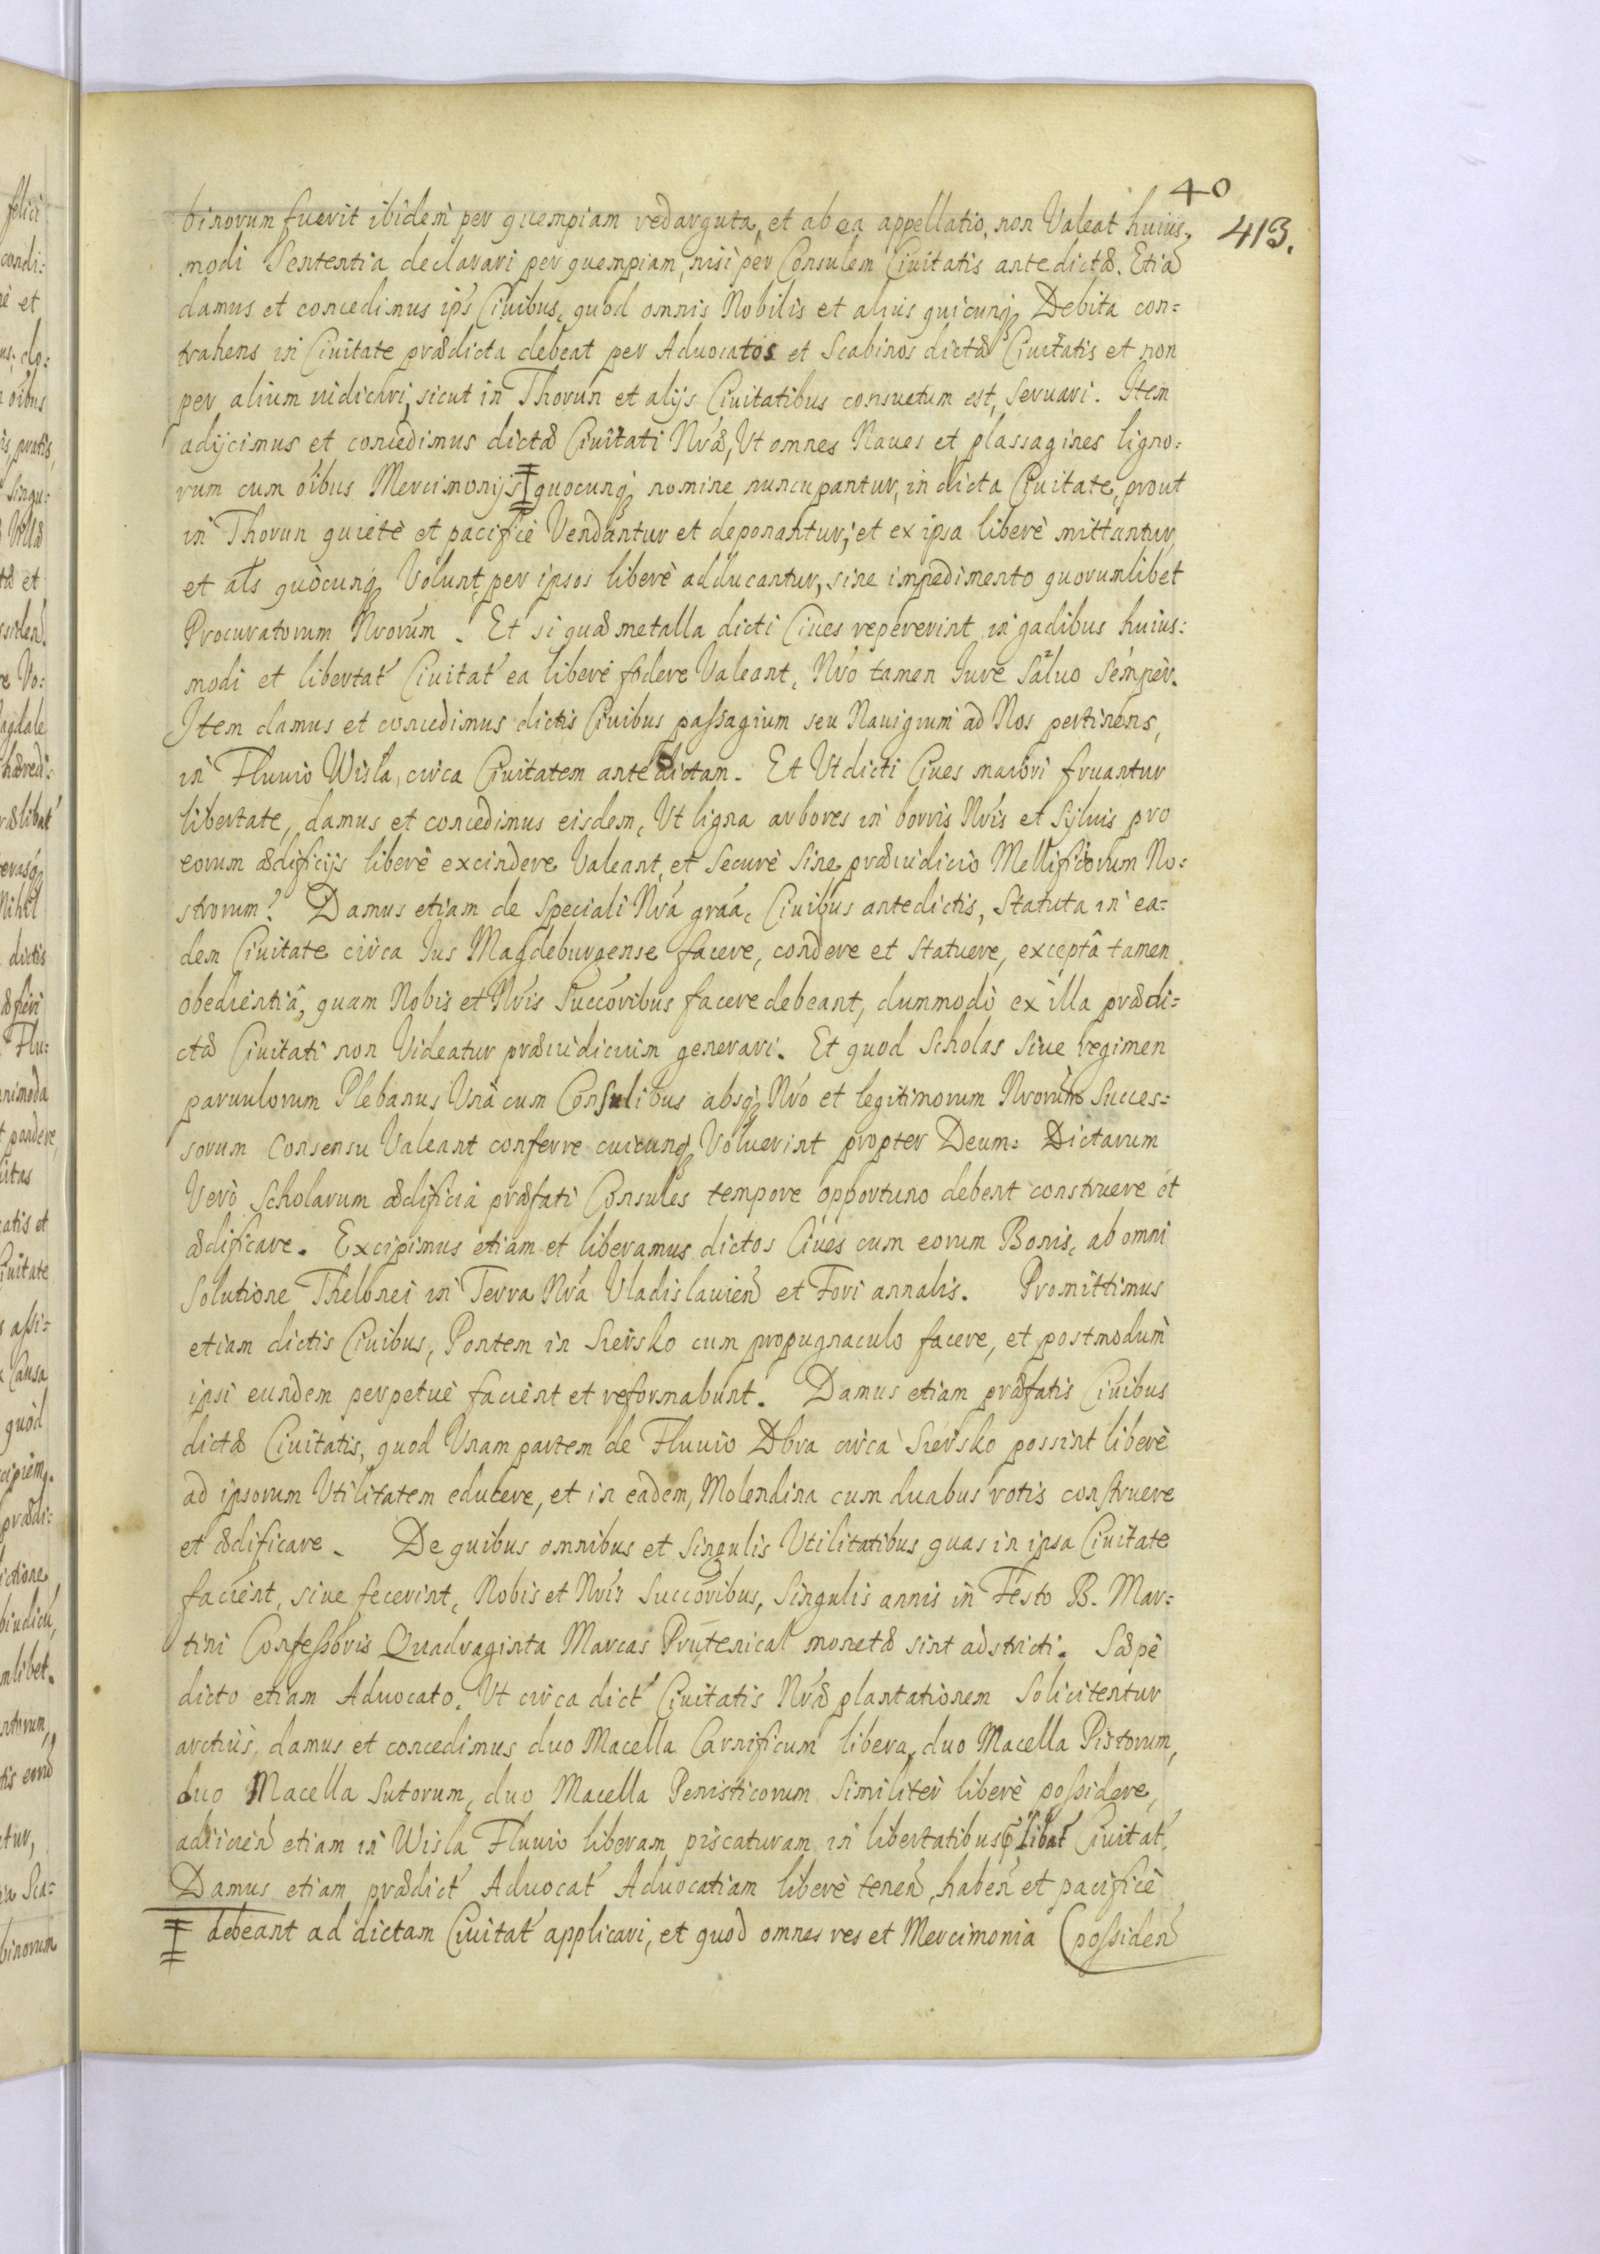 40
413.
binorum fuerit ibidem per quempiam redarguta, et ab ea appellatio, non Valeat huius-
modi Sententia declarari per quempiam, nisi per Consulem Ciuitatis antedictæ. Etiã
damus et concedimus ips Ciuibus, quòd omnis Nobilis et alius quicunq3 Debita con=
trahens in Ciuitate prædicta debeat per Aduocatos et Scabinos dictæ Ciuitatis et non
per alium iudicari, sicut in Thorun et alijs Ciuitatibus consuetum est, seruari. Item
adijcimus et concedimus dictæ Ciuitati Nræ, Vt omnes Naues et plassagines ligno=
rum cum oibus Mercimonijs ‡ quocunq3 nomine nuncupantur, in dicta Ciuitate, prout
in Thorun quietè et pacificè Vendantur et deponantur, et ex ipsa liberè mittantur,
et als quòcunq3 Volunt, per ipsos liberè adducantur, sine impedimento quorumlibet
Procuratorum Nrorum. Et si quæ metalla dicti Ciues repererint in gadibus huius=
modi et libertat Ciuitat ea liberè fodere Valeant, Nro tamen Iure Saluo Semper.
Item damus et concedimus dictis Ciuibus passagium seu Nauigium ad Nos pertinens,
in Fluuio Wisla, circa Ciuitatem antedictam. Et Vt dicti Ciues maiori fruantur
libertate, damus et concedimus eisdem, Vt ligna arbores in borris Nris et Syluis pro
eorum ædificijs liberè excindere Valeant, et Securè Sine præiudicio Mellificorum No=
strorum. Damus etijam de Speciali Nrá graá, Ciuibus antedictis, Statuta in ea=
dem Ciuitate circa Ius Magdeburgense facere, condere et Statuere, exceptâ tamen
obedientiâ, quam Nobis et Nris Succoribus facere debeant, dummodò ex illa prædi=
ctæ Ciuitati non Videatur præiudicium generari. Et quod Scholas Siue regimen
paruulorum Plebanus Vnà cum Consulibus absq3 Nro et legitimorum Nrorum Succes=
sorum Consensu Valeant conferre cuicunq3 Voluerint propter Deum. Dictarum
Verò Scholarum ædificia præfati Consules tempore opportuno debent construere et
ædificare. Excipimus etiam et liberamus dictos Ciues cum eorum Bonis, ab omni
Solutione Thelonei in Terra Nra Vladislauien et Fori annalis. Promittimus
etiam dictis Ciuibus, Pontem in Siersko cum propugnaculo facere, et postmodum
ipsi eundem perpetuè facient et reformabunt. Damus etiam præfatis Ciuibus
dictæ Ciuitatis, quod Vnam partem de Fluuio Dbra circa Siersko possint liberè
ad ipsorum Vtilitatem educere, et in eadem, Molendina cum duabus rotis construere
et ædificare. De quibus omnibus et Singulis Vtilitatibus quas in ipsa Ciuitate
facient, siue fecerint, Nobis et Nris Succoribus, Singulis annis in Festo B. Mar=
tini Confessoris Quadraginta Marcas Prutenical monetæ sint adstricti. Sæpè
dicto etiam Aduocato, Vt circa dict Ciuitatis Nræ plantationem Solicitentur
arctiùs, damus et concedimus duo Macella Carnificum libera, duo Macella Pistorum,
duo Macella Sutorum, duo Macella Penisticorum Similiter liberè possidere,
adiicien etiam in Wisla Fluuio liberam piscaturam in libertatibus libat Ciuitat.
Damus etiam prædict Aduocat Aduocatiam liberè tenen, haben et pacificè
‡ debeant ad dictam Ciuitat applicari, et quod omnes res et Mercimonia (possiden